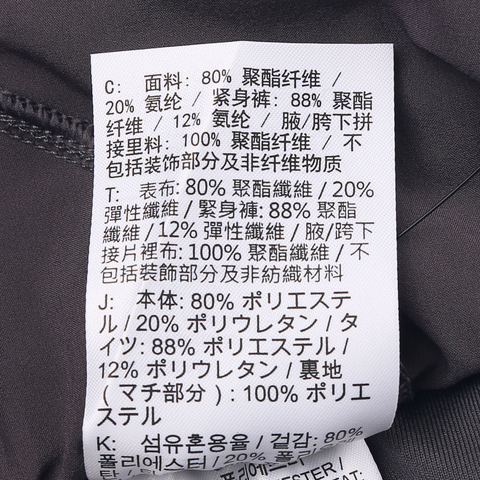 C: 面料: 80% 聚酯纤维 /
20% 氨纶 / 紧身裤: 88% 聚酯
纤维 / 12% 氨纶 / 腋/胯下拼
接里料: 100% 聚酯纤维 / 不
包括装饰部分及非纤维物质
T: 表布: 80% 聚酯纖維 / 20%
彈性纖維 / 緊身褲: 88% 聚酯
纖維 / 12% 彈性纖維 / 腋/跨下
接片裡布: 100% 聚酯纖維 / 不
包括裝飾部分及非紡織材料
J: 本体: 80% ポリエステ
ル / 20% ポリウレタン / タ
イツ: 88% ポリエステル /
12% ポリウレタン / 裏地
(マチ部分) : 100% ポリエ
ステル
K: 섬유혼용율 / 겉감: 80%
폴리에스터 / 20% 폴리우레